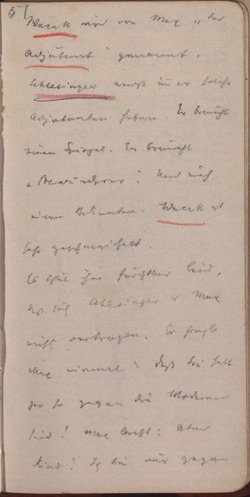 5
Wacek wird von Max "der
Adjutant" genannt.
Schlesinger muß immer solche
Adjutanten haben. Er braucht
einen Spiegel. Er braucht
"Bewunderer". Und auch
einen Bedienten. Wacek ist
sehr geschmeichelt.
Es thut ihm furchtbar leid,
daß sich Schlesinger u Max
nicht vertragen. Er fragte
Max einmal: daß Sie halt
gar so gegen die Moderne
sind! Max lacht: Aber
Kind! Ich bin nur gegen